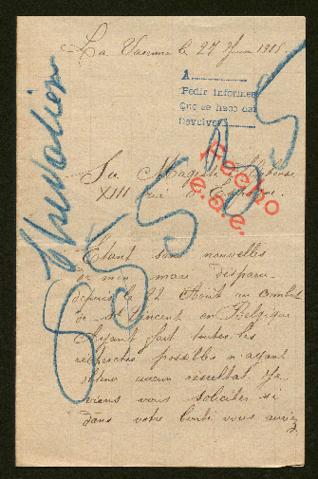 La Varenne le 27 Juin 1915
A
Pedir informes
Que se haga cargo
Devolver
Hecho
e.s.e.
Sa Magesté Alphonse
XIII roi d'Espagne
Etant sans nouvelles
de mon mari disparu
depuis le 22 Août au combat
de St Vincent en Belgique
Ayant fait toutes les
recherches possibles n'ayant
obtenu aucun résultat Je
viens vous soliciter si
dans votre bonté vous auriez